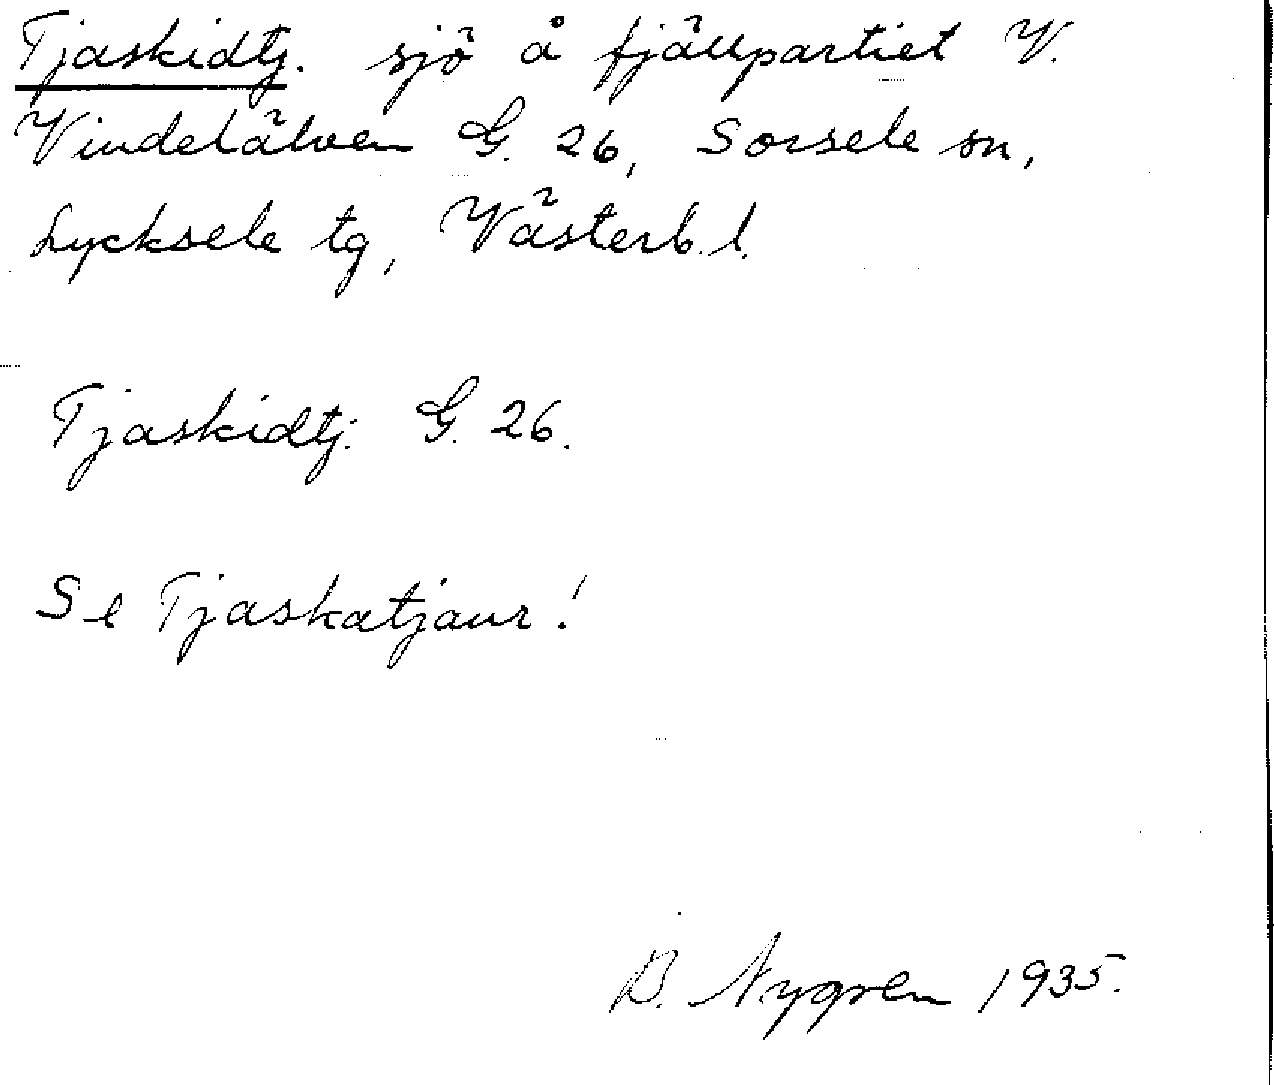 Tjaskidtj. sjö å fjällpartiet V.
Vindelälven G. 26, Sorsele sn,
Lycksele tg, Västerb. l.
Tjaskidtj. G. 26.
Se Tjaskatjaur!
B. Nygren 1935.